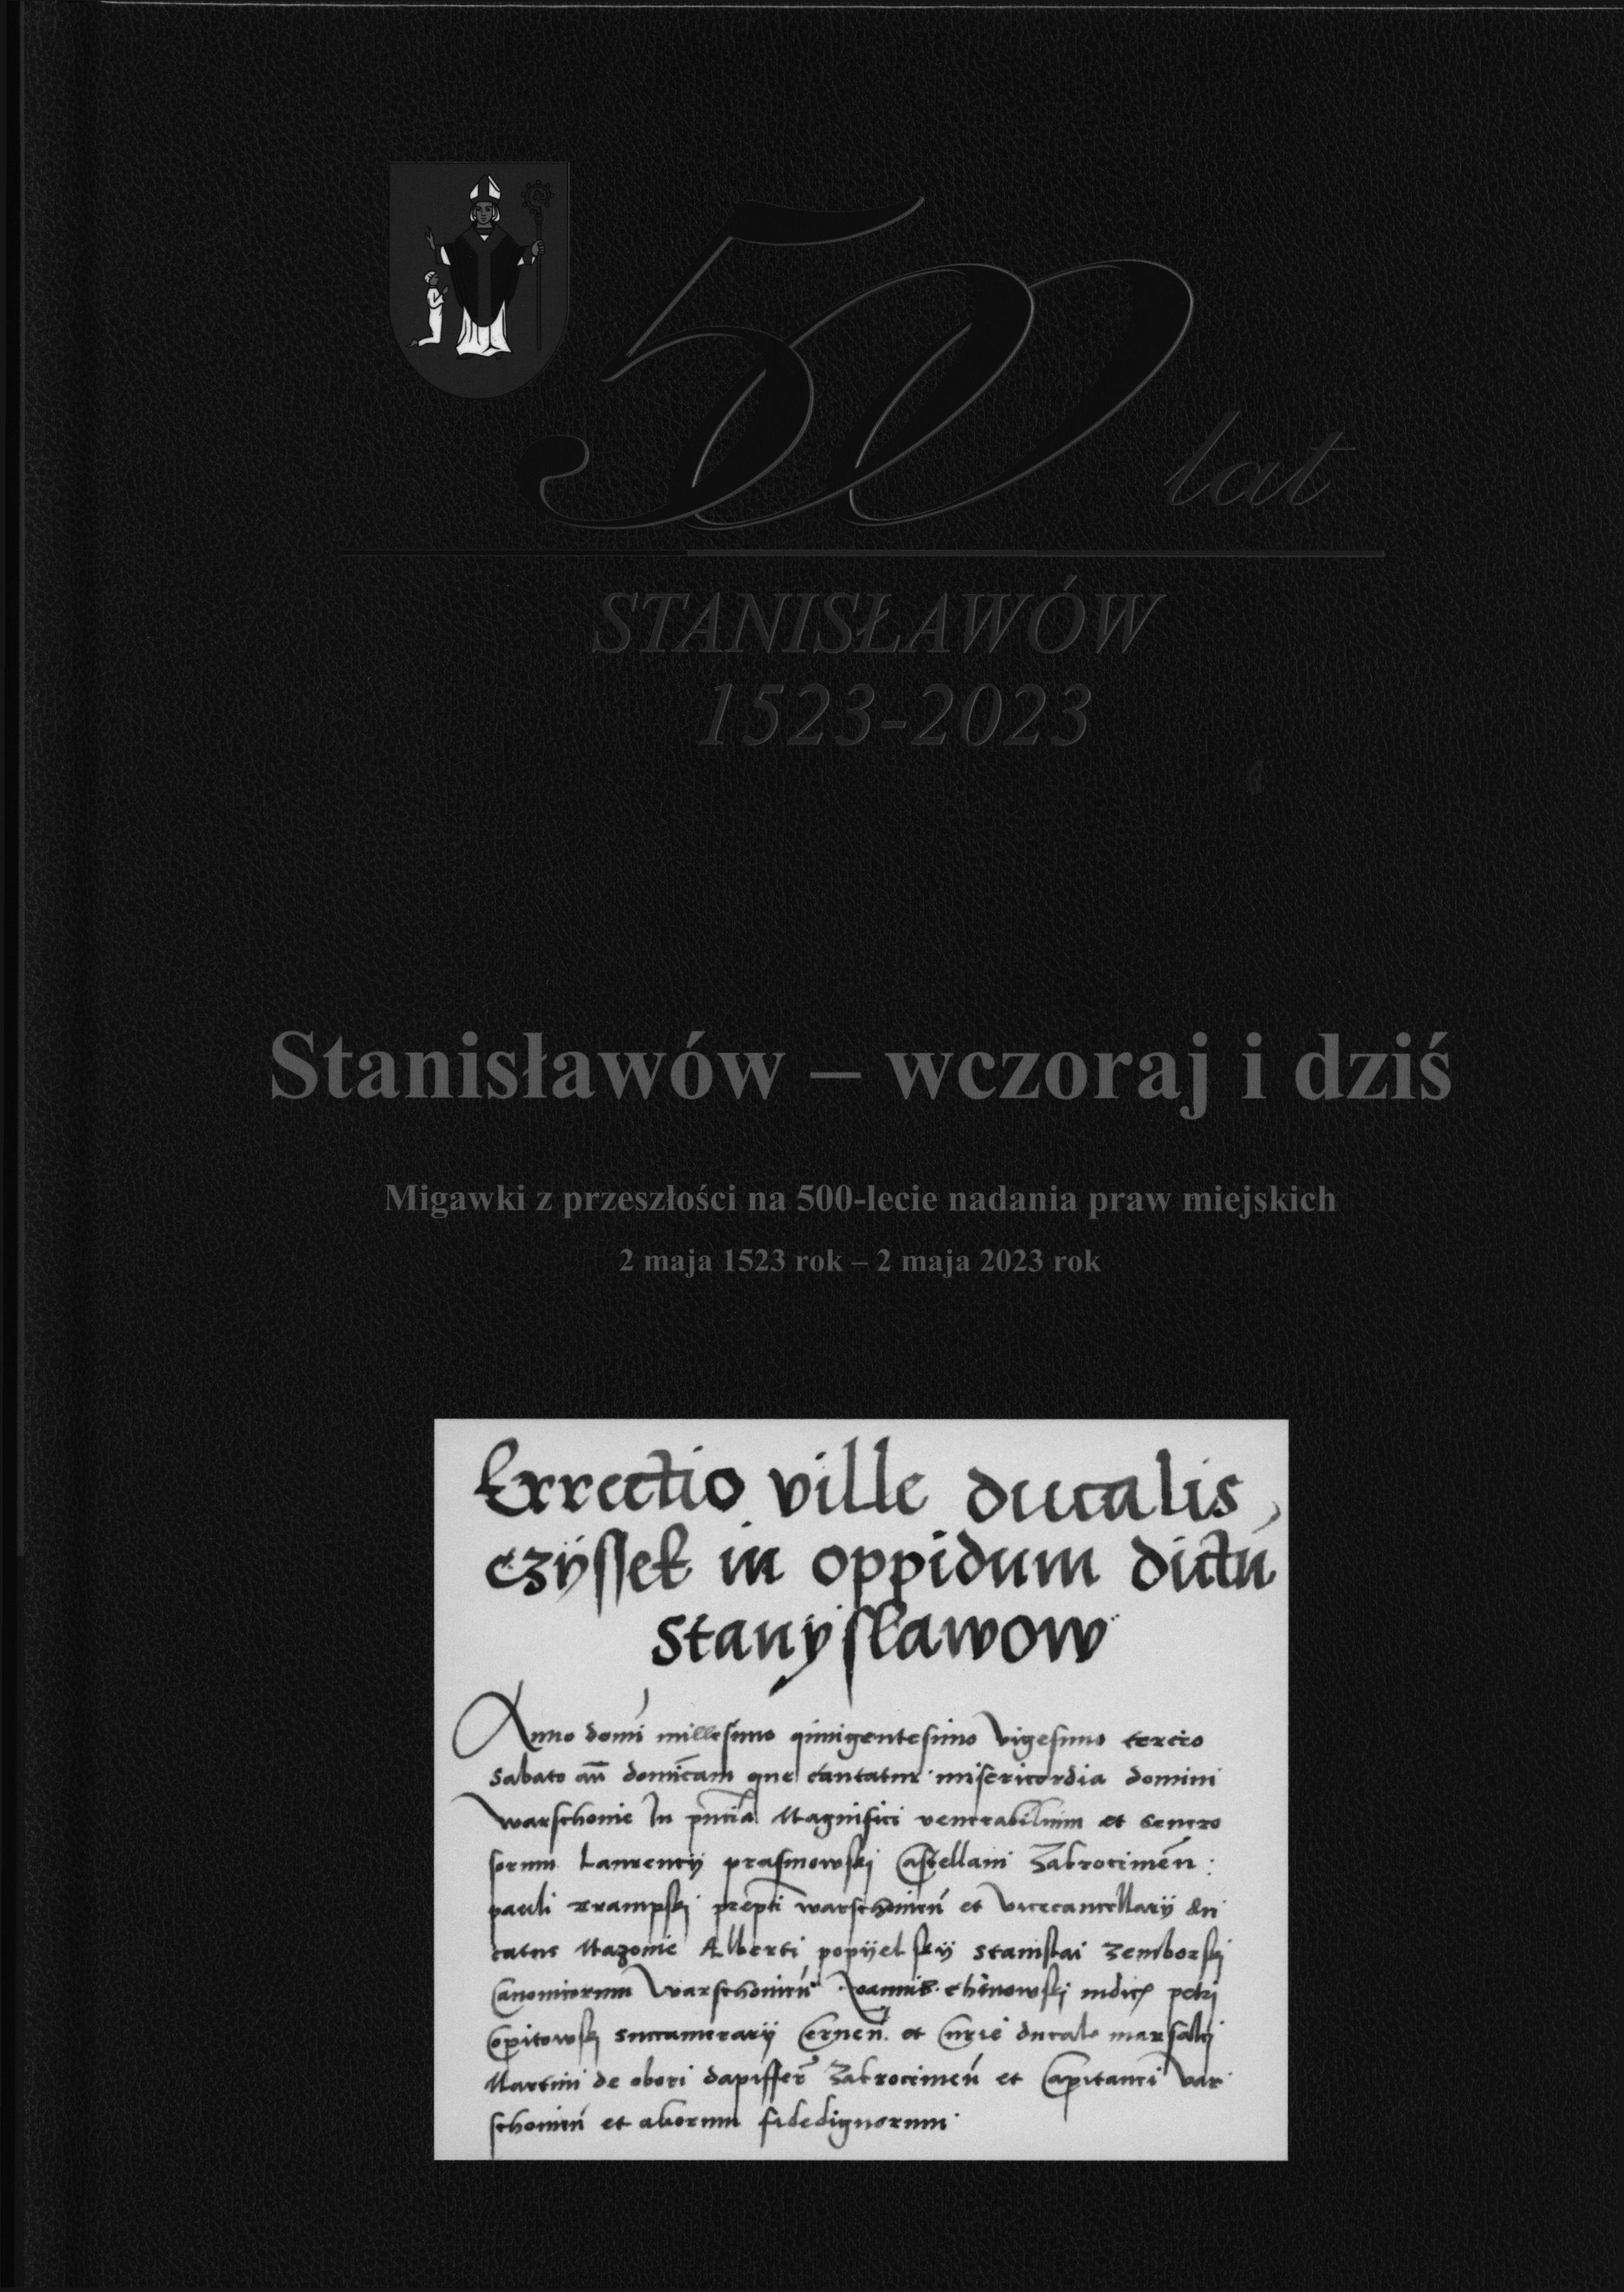 500 lat
STANISŁAWÓW
1523-2023
Stanisławów – wczoraj i dziś
Migawki z przeszłości na 500-lecie nadania praw miejskich
2 maja 1523 rok – 2 maja 2023 rok
Errectio ville ducalis
czÿssek in oppidum dictu
stanyslawow
Anno domi millesimo quingentesimo vigesimo tercio
Sabato an domicam que cantatur misericordia domini
warschouie In pncia Magnifici venerabilium et Genero
sorum Laurency prasmowski Castellani Zakrocimen :
pauli prepti warschouien et vicecancellary du
catus Mazouie Alberti popyelsky Stanislai Zemborski
Canonicorum Warschouien petri
Copitowski succamerary Cernen. et Curie ducalis marsalci
Martini de obori dapifferi Zakrocimen et Capitanei var
schouien et aliorum fidedignorum